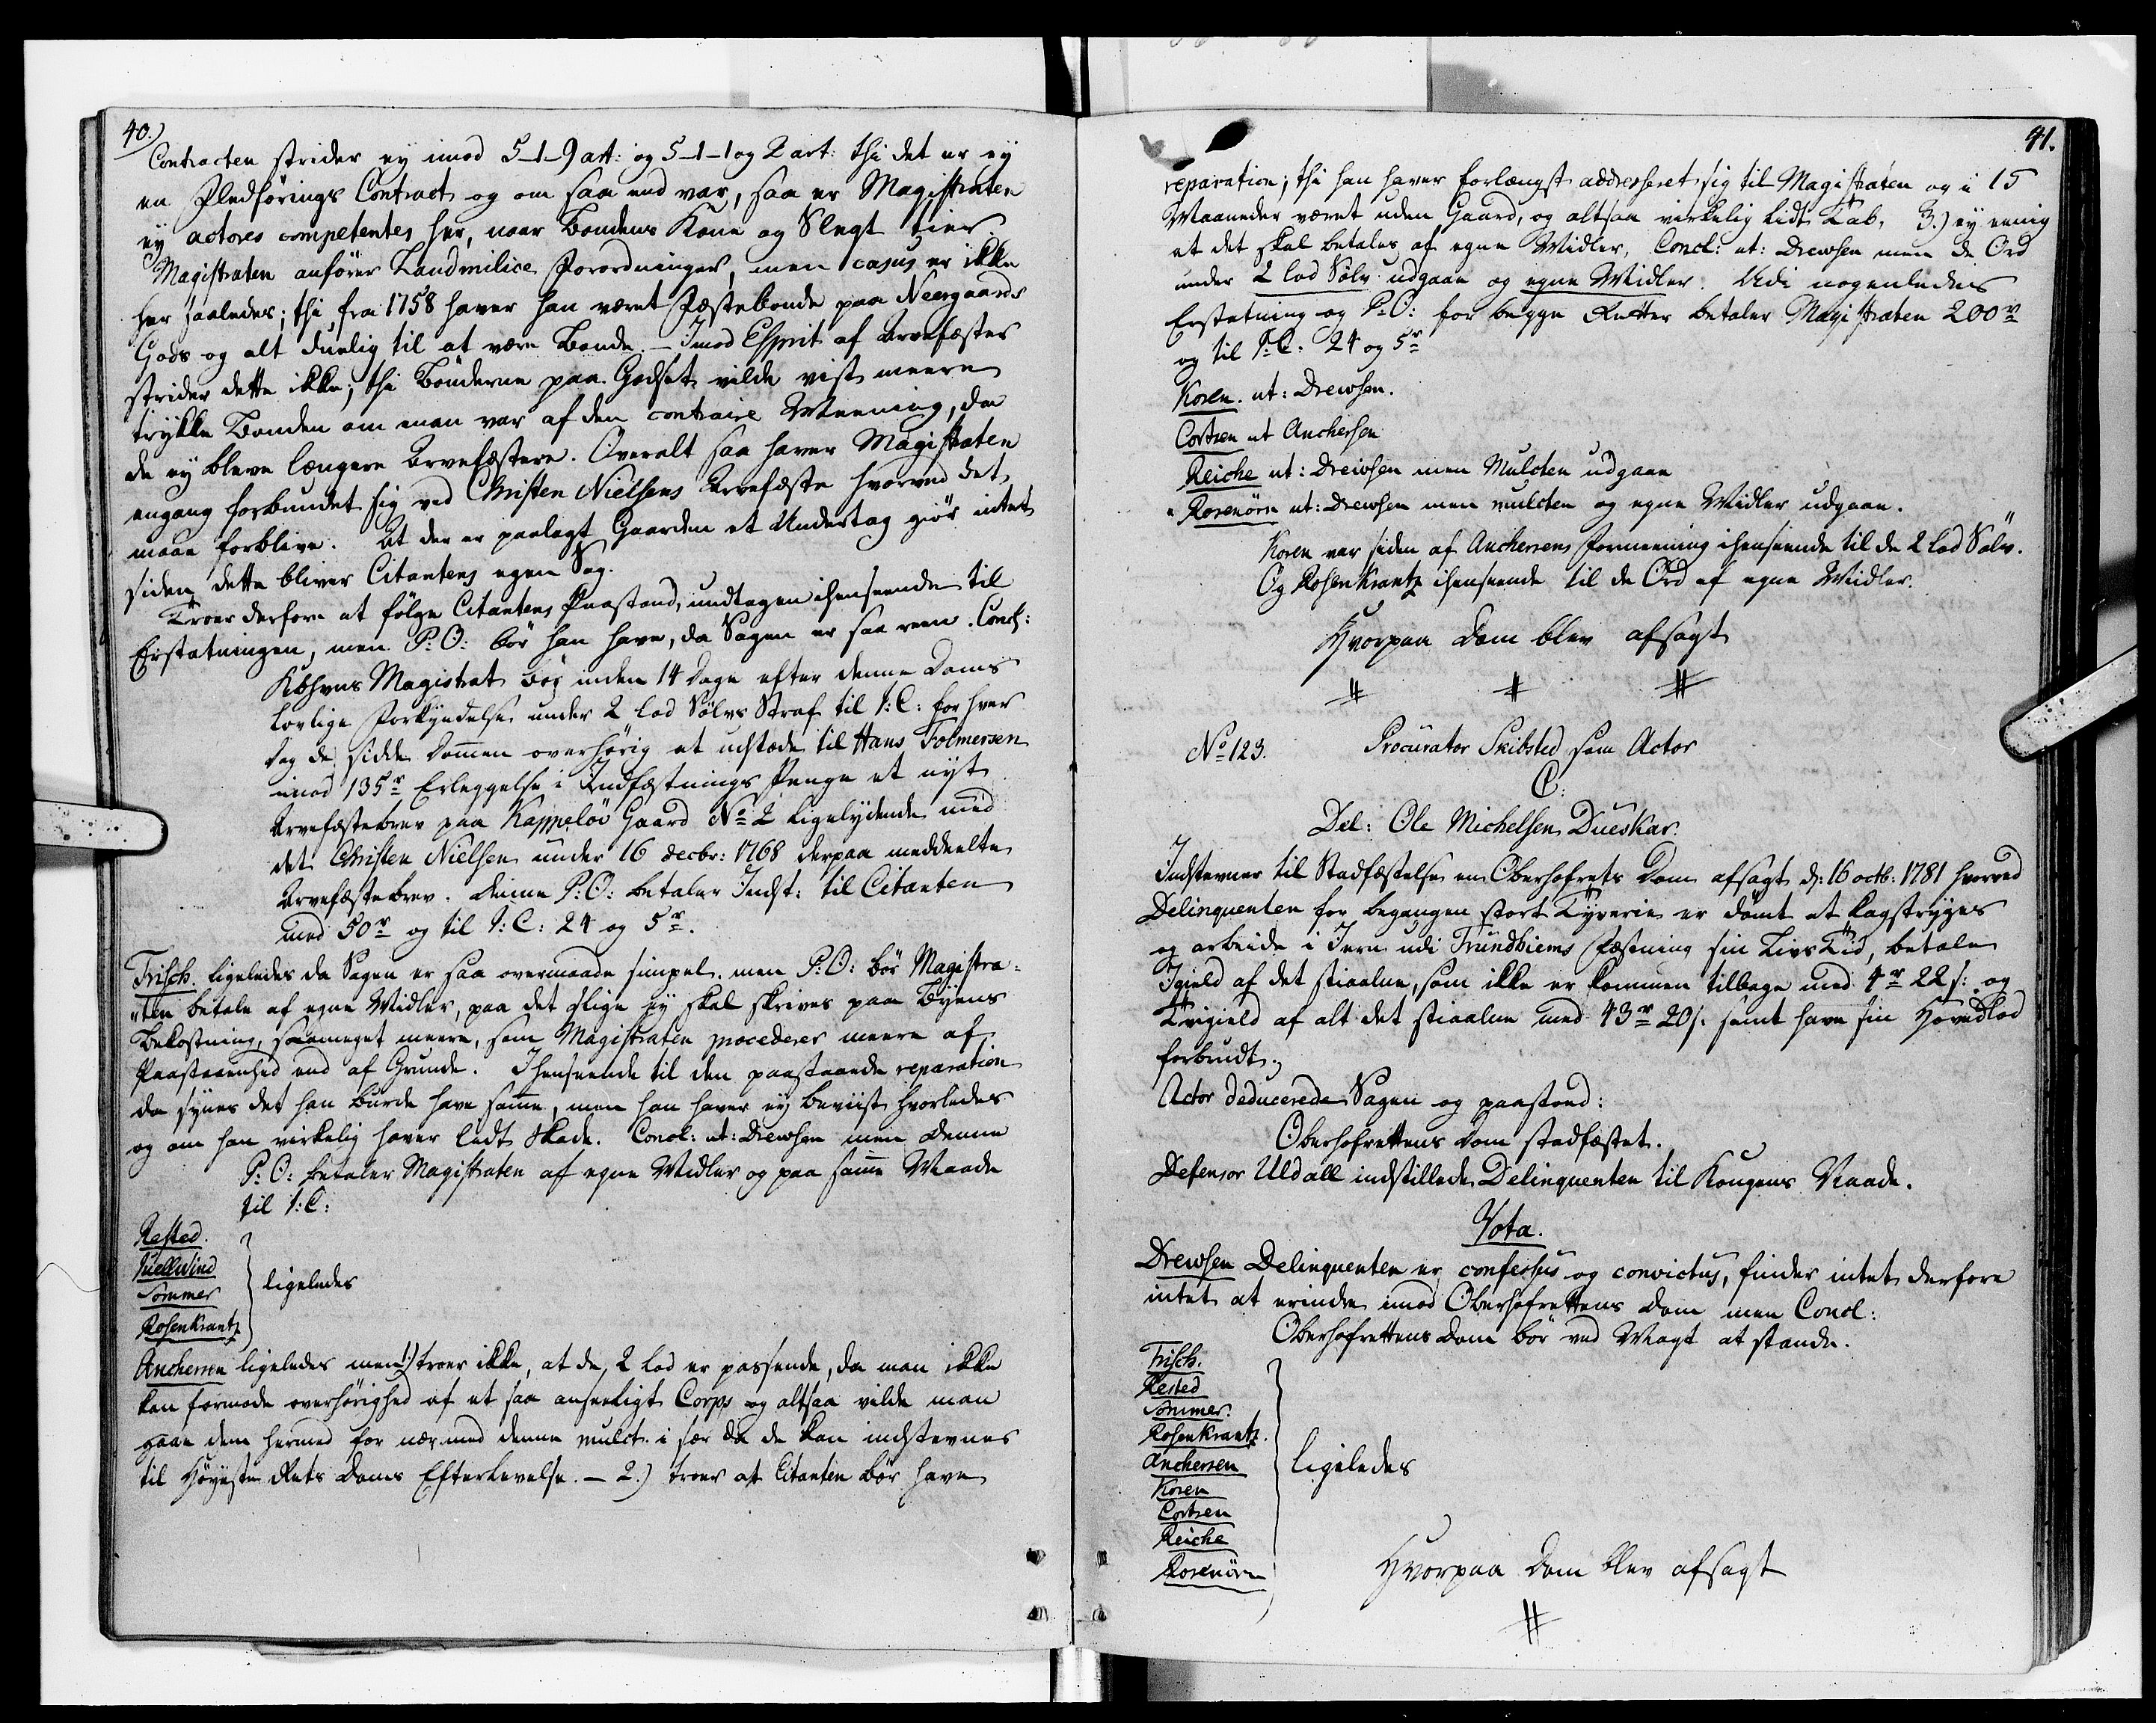 40.)
Contracten strider ey imod 5-1-9 art: og 5-1-1 og 2 art: thi det er ey
en Fledførings Contract og om saa end var, saa er Magistraten
ey actores competentes her, naar Bondens Kone og Slegt tier.
Magistraten anfører Landmilice Forordninger, men casus er ikke
her saaledes; thi fra 1758 haver han været Fæstebonde paa Neergaards
Gods og alt duelig til at være Bonde. – Imod Esprit af Arvefæster
strider dette ikke; thi Bønderne paa Godset vilde vist meere
trykke Bonden om man var af den contraire Meening, da
de ey bleve længere Arvefæstere. Overalt saa haver Magistraten
engang forbundet sig ved Christen Nielsens Arvefæste hvorved det
maae forblive. At der er paalagt Gaarden et Undertag giør intet
siden dette bliver Citantens egen Sag.
Troer derfore at følge Citantens Paastand, undtagen ihenseende til
Erstatningen, men P: O: bør han have, da Sagen er saa reen. Concl:
Kbhvns Magistrat bør inden 14 Dage efter denne Doms
lovlige Forkyndelse under 2 lod Sølvs Straf til J: C: for hver
Dag de sidde Dommen overhørig at udstæde til Hans Folmersen
imod 135r Erleggelse i Indfæstnings Penge et nyt
Arvefæstebrev paa Kappeløv Gaard No 2 ligelydende med
det Christen Nielsen under 16 decbr: 1768 derpaa meddeelte
Arvefæstebrev. Denne P: O: betaler Indst: til Citanten
med 50r og til J: C: 24 og 5r.
Frisch. ligeledes da Sagen er saa overmaade simpel. men P: O: bør Magistra-
ten betale af egne Midler, paa det slige ey skal skrives paa Byens
Bekostning, saameget meere, som Magistraten procederer meere af
Paastaaenhed end af Grunde. Ihenseende til den paastaaende reparation
da synes det han burde have samme, men han haver ey beviist hvorledes
og om han virkelig haver lidt Skade. Concl: ut: Drewsen men denne
P: O: betaler Magistraten af egne Midler og paa samme Maade
til J: C:
Rested.
Juellwind
Sommer
Rosenkrantz
ligeledes
Anchersen ligeledes men 1.) troer ikke, at de 2 lod er passende, da man ikke
kan formode overhørighed af et saa anseeligt Corps og altsaa vilde man
gaae dem hermed for nær med denne mulct. i sær da de kan indstevnes
til Høyeste Rets Doms Efterlevelse. – 2.) troer at Citanten bør have
41.
reparation; thi han haver forlængst addresseret sig til Magistraten og i 15
Maaneder været uden Gaard, og altsaa virkelig lidt Tab. 3.) ey eenig
at det skal betales af egne Midler, Concl: ut: Drewsen men de Ord
under 2 lod Sølv udgaae og egne Midler. Udi nogenledes
Erstatning og P: O: for begge Retter betaler Magistraten 200r
og til J: C: 24 og 5r
Koren. ut: Drewsen.
Cortsen ut Anchersen
Reiche ut: Drewsen men Mulcten udgaae
Rosenörn ut: Drewsen men mulcten og egne Midler udgaae.
Koren var siden af Anchersens Formeening ihenseende til de 2 lod Sølv.
Og Rosenkrantz ihenseende til de Ord af egne Midler.
Hvorpaa Dom blev afsagt
No 123. Procurator Skibsted som Actor
C:
Del: Ole Michelsen Dueskar.
Indstevner til Stadfæstelse en Oberhofrets Dom afsagt d: 16 octb: 1781 hvorved
Delinquenten for begangen stort Tyverie er dømt at kagstryges
og arbeide i Jern udi Trundhiems Fæstning sin Livs Tid, betale
Igield af det stiaalne, som ikke er kommen tilbage med 4r 22 s: og
Tvigield af alt det stiaalne med 43r 20 s. samt have sin Hovedlod
forbrudt.
Actor deducerede Sagen og paastod:
Oberhofrettens Dom stadfæstet.
Defensor Uldall indstillede Delinquenten til Kongens Naade.
Vota.
Drewsen Delinquenten er confessus og convictus, finder intet derfore
intet at erindre imod Oberhofrettens Dom men Concl:
Oberhofrettens Dom bør ved Magt at stande.
Frisch.
Rested
Sommer.
Rosenkrantz.
Anchersen
Koren
Cortsen
Reiche
Rosenörn
ligeledes
Hvorpaa Dom blev afsagt